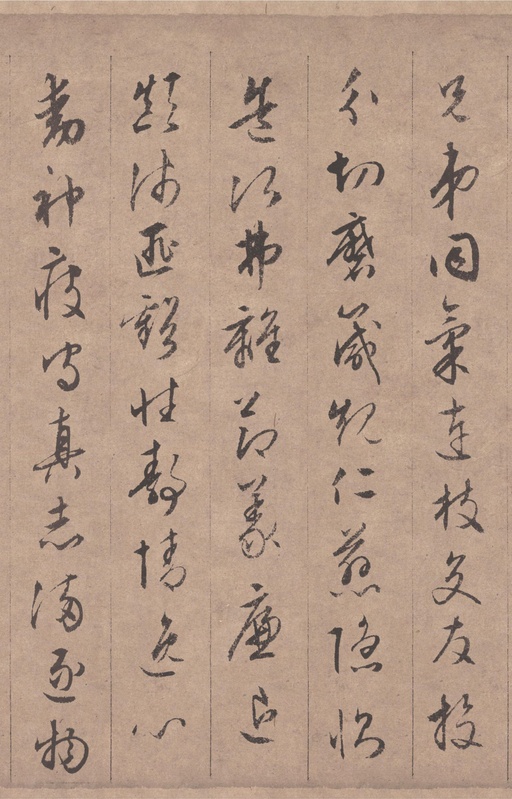 兄弟同氣連枝交友投
分切磨箴規仁慈隱惻
造次弗離節義廉退
顛沛匪虧性靜情逸心
動神疲守真志滿逐物